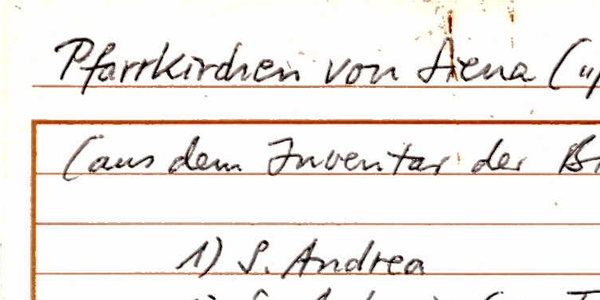 Pfarrkirchen von Siena ("
(aus dem Inventar der
1) S. Andrea